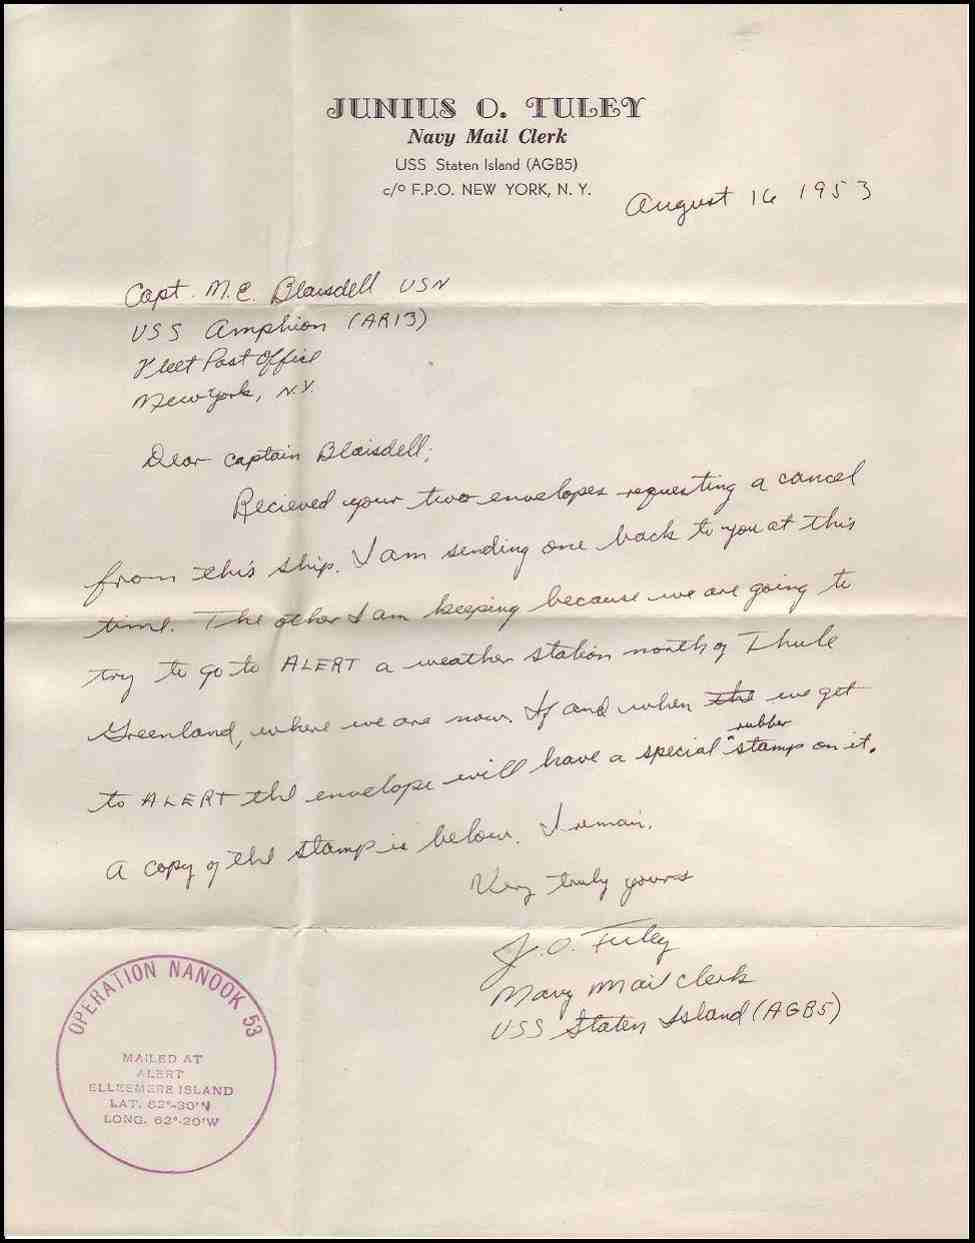 JUNIUS O. TULEY
Navy Mail Clerk
USS Staten Island (AGB5)
c/o F.P.O. NEW YORK, N. Y.
August 16 1953
Capt. M.E. Blaisdell USN
USS Amphion (AR13)
Fleet Post Office
New York, N.Y.
Dear Captain Blaisdell;
Recieved your two envelopes requesting a cancel
from this ship. I am sending one back to you at this
time. The other I am keeping because we are going to
try to go to ALERT a weather station north of Thule
Greenland, where we are now. If and when the we get
rubber
to ALERT the envelope will have a special stamp on it.
A copy of the stamp is below. I remain.
Very truly yours
J.O. Tuley
Navy Mail Clerk
USS Staten Island (AGB5)
OPERATION NANOOK 53
MAILED AT
ALERT
ELLESMERE ISLAND
LAT. 82°-30'N
LONG. 62°-20'W